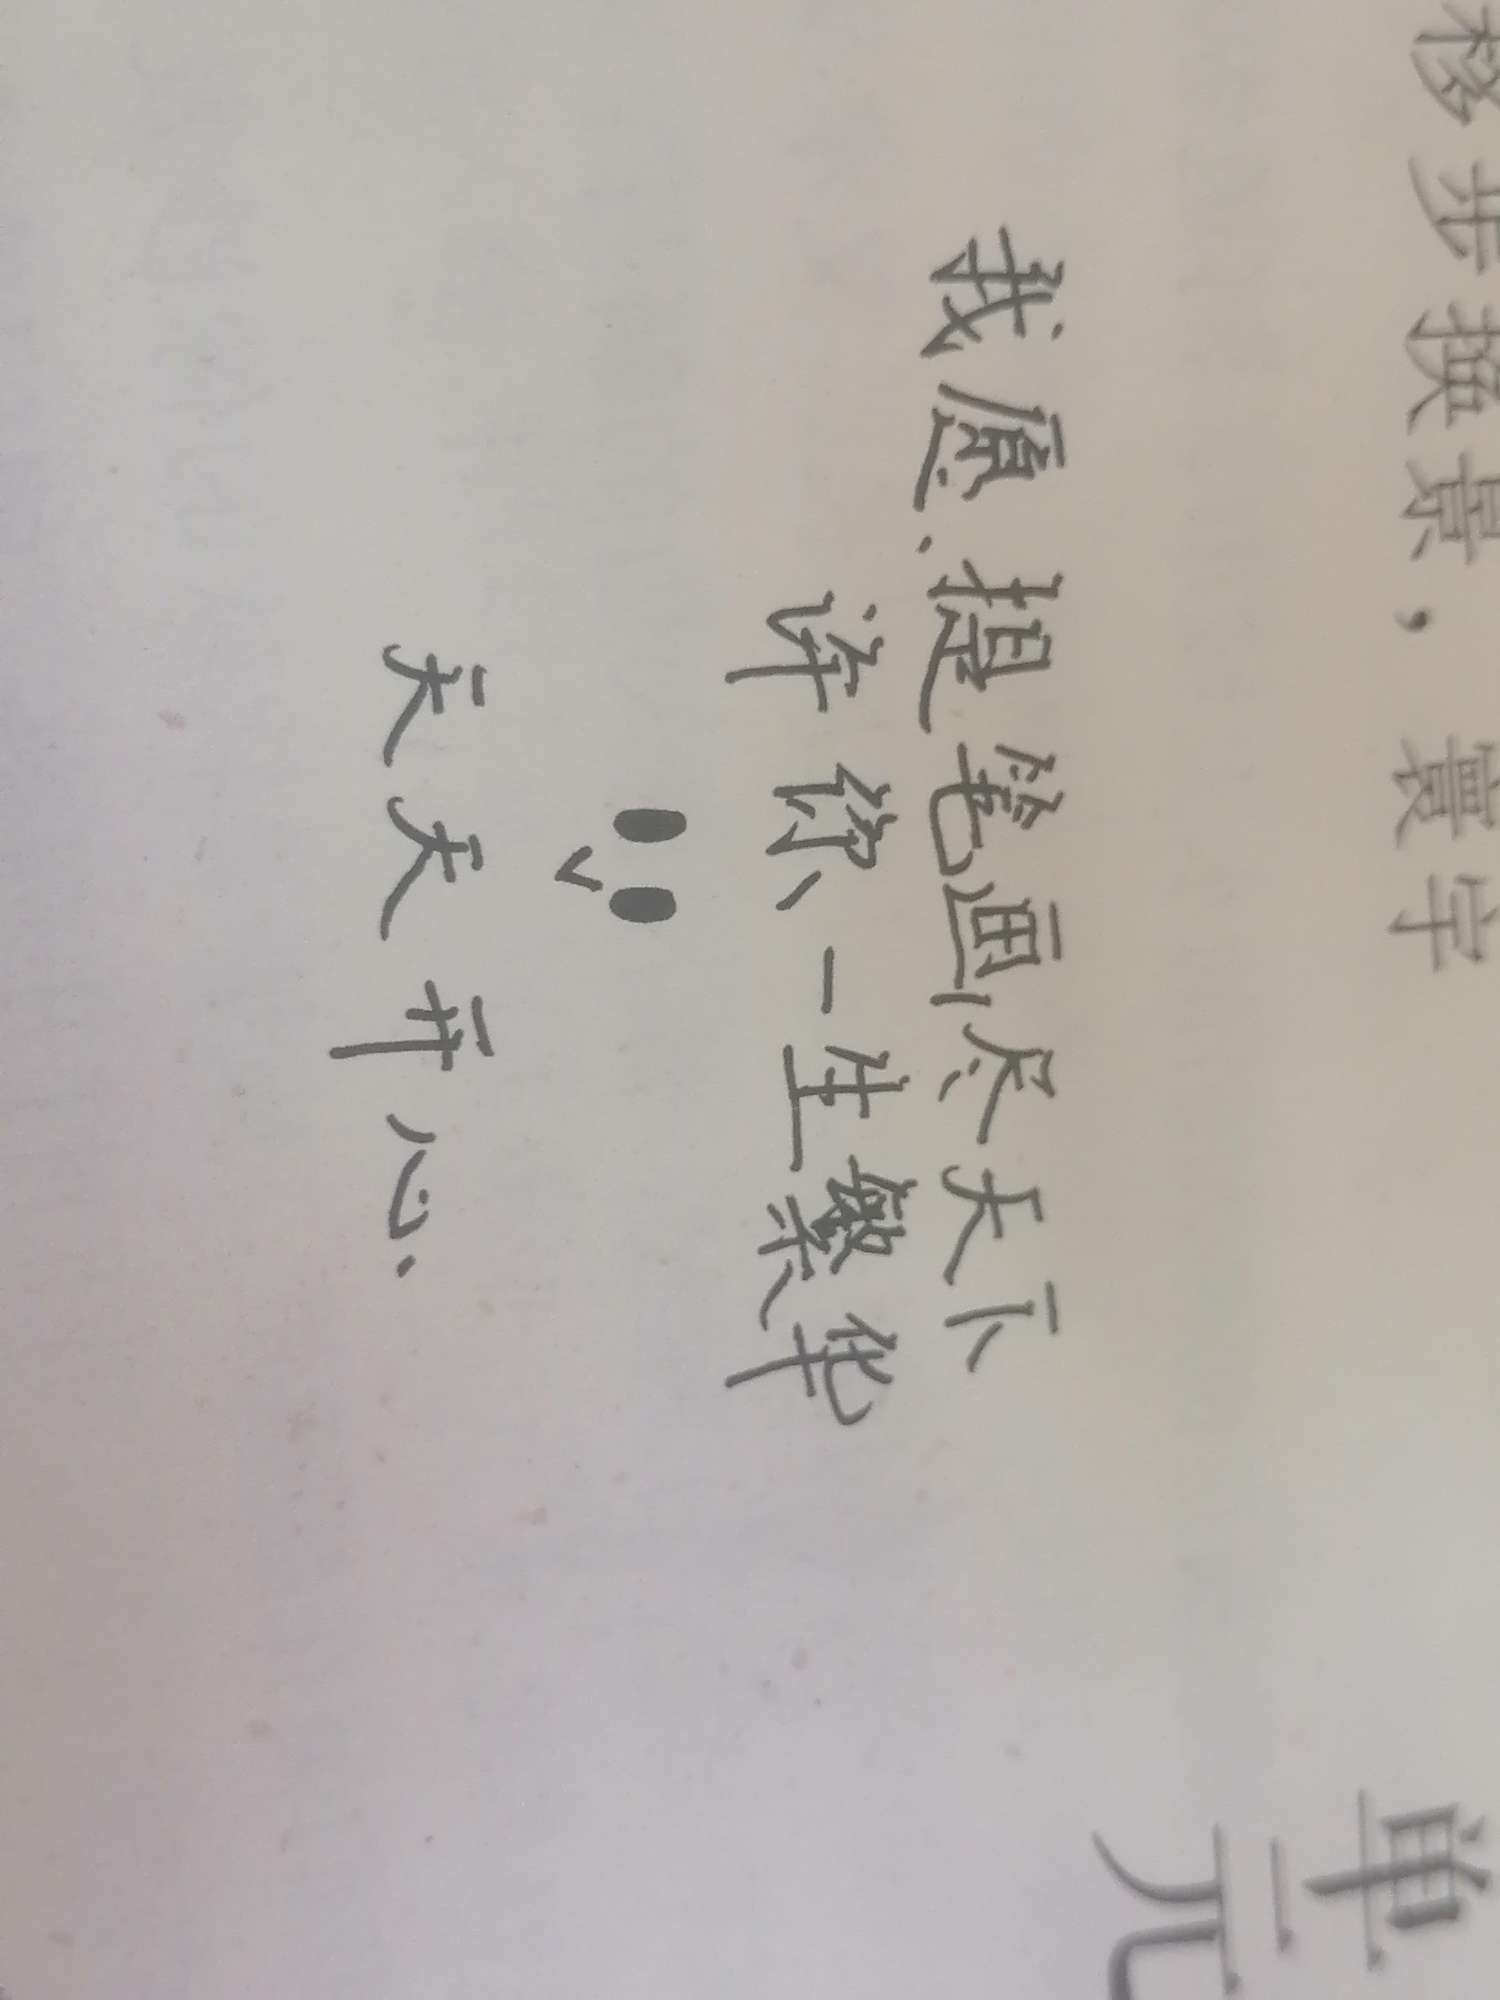 移步换景，寰宇
单元
我愿、提笔画尽天下
许你、一生繁华
天天开心.